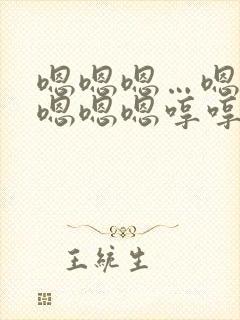 嗯嗯嗯…嗯
嗯嗯嗯哼哼
王统生